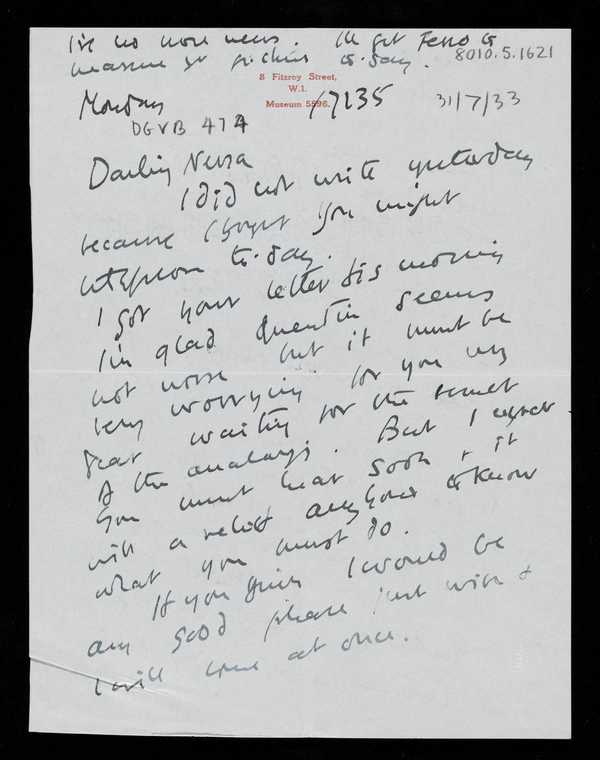 I've no more news. Ill get Ferro to
measure yr pictures to-day. 8010.5.1621
8 Fitzroy Street,
W.1.
Museum 5596.
Monday 17235 31/7/33
DGVB 474
Darling Nessa
I did not write yesterday
because I thought you might
telephone to-day.
I got your letter this morning
I'm glad Quentin seems
not worse but it must be
very worrying for you my
dear waiting for the result
of the analysis. But I expect
you must hear soon & it
will a relief anyhow to know
what you must do.
If you think I would be
any good please just wire &
I will come at once.